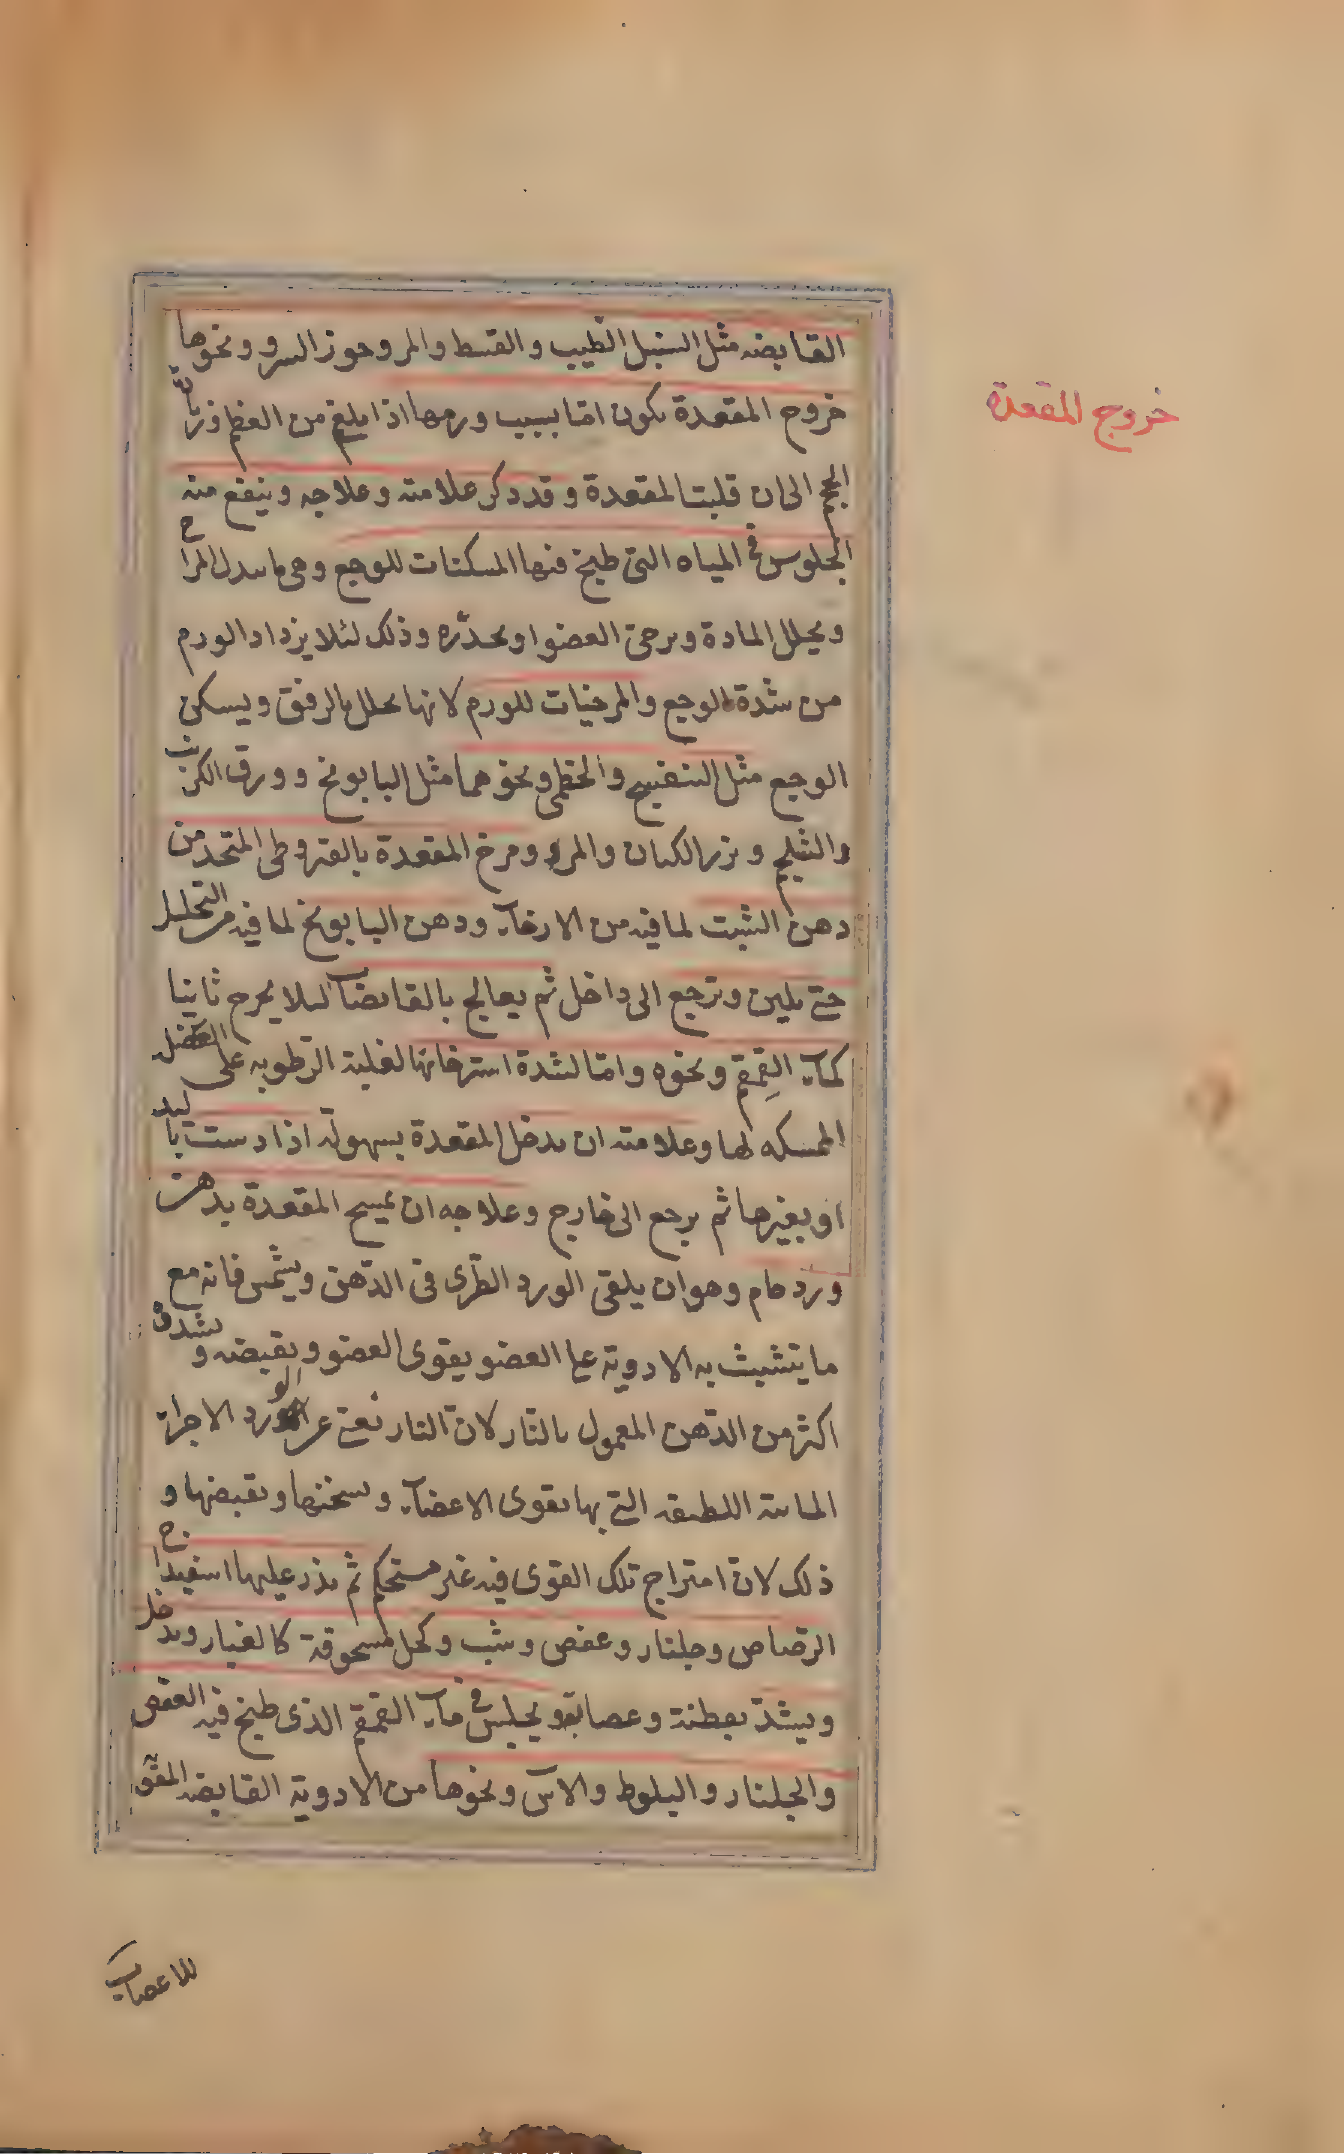 القابضه مثل السنبل الطيب والقسط والمر وجوز السرو ونحوها
خروج المقعدة
خروج المقعدة يكون امّا بسبب ورمها اذا بلغ من العظم وزيادة
الحجم الى ان قلبت المقعدة وقد ذكر علامته وعلاجه وينفع منه
الجلوس في المياه التى طبخ فيها المسكنات للوجع وهى ما يبدل المزاج
ويحلل المادة ويرخى العضو او يخدّره وذلك لئلا يزداد الورم
من شدة الوجع والمرخيات للورم لانها تحلل بالرفق ويسكن
الوجع مثل البنفسج والخطمى ونحوهما مثل البابونج وورق الكرنب
والشلجم وبزر الكتان والمرو ومرخ المقعدة بالقيروطى المتخذ من
دهن الشبت لما فيه من الارخاء ودهن البابونج لما فيه من التحليل
حتى يلين وترجع الى داخل ثم يعالج بالقابضات لئلا يخرج ثانيا
كماء القمقم ونحوه وامّا لشدة استرخائها لغلبة الرّطوبه على العضل
الممسكه لها وعلامته ان يدخل المقعدة بسهولة اذا دست باليد
او بغيرها ثم يرجع الى خارج وعلاجه ان يمسح المقعدة بدهن
ورد خام وهو ان يلقى الورد الطّرى فى الدّهن ويشمس فانه مع
ما يتشبث به الادوية على العضو يقوى العضو ويقبضه ويشده
اكثر من الدّهن المعمول بالنّار لانّ النار تفنى عن الورد الاجزاء
المائية اللطيفه التى بها يقوى الاعضاء ويسخنها ويقبضها و
ذلك لانّ امتزاج تلك القوى فيه غير مستحكم ثم يذر عليها اسفيداج
الرصاص وجلنار وعفص وشب وكحل مسحوقة كالغبار ويدخل
ويشدّ بقطنة وعصابة ويجلس فى ماء القمقم الذى طبخ فيه العفص
والجلنار والبلوط والاس ونحوها من الادوية القابضه المقو
للاعصاب